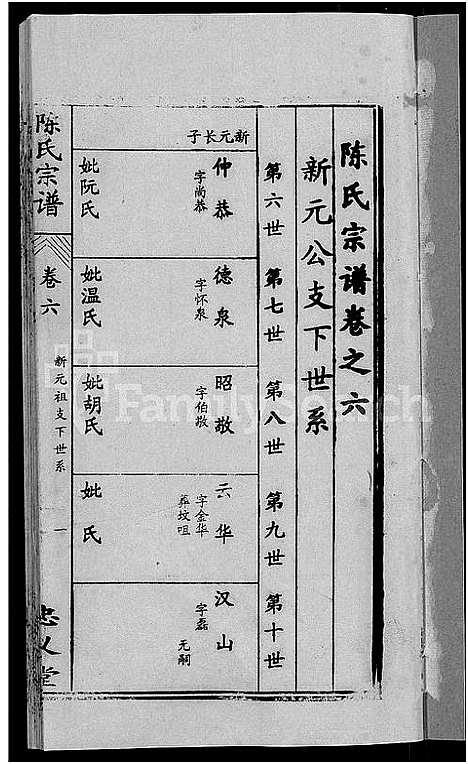 陈氏宗谱卷之六
新元公支下世系
第六世
第七世
第八世
第九世
第十世
新元长子
仲恭
字尚恭
妣阮氏
德泉
字怀泉
妣温氏
昭敬
字伯敬
妣胡氏
云华
字金华
葬坟咀
妣氏
汉山
字磊
元嗣
陈氏宗谱
卷六
新元祖支下世系
一
忠义堂
FamilySearch